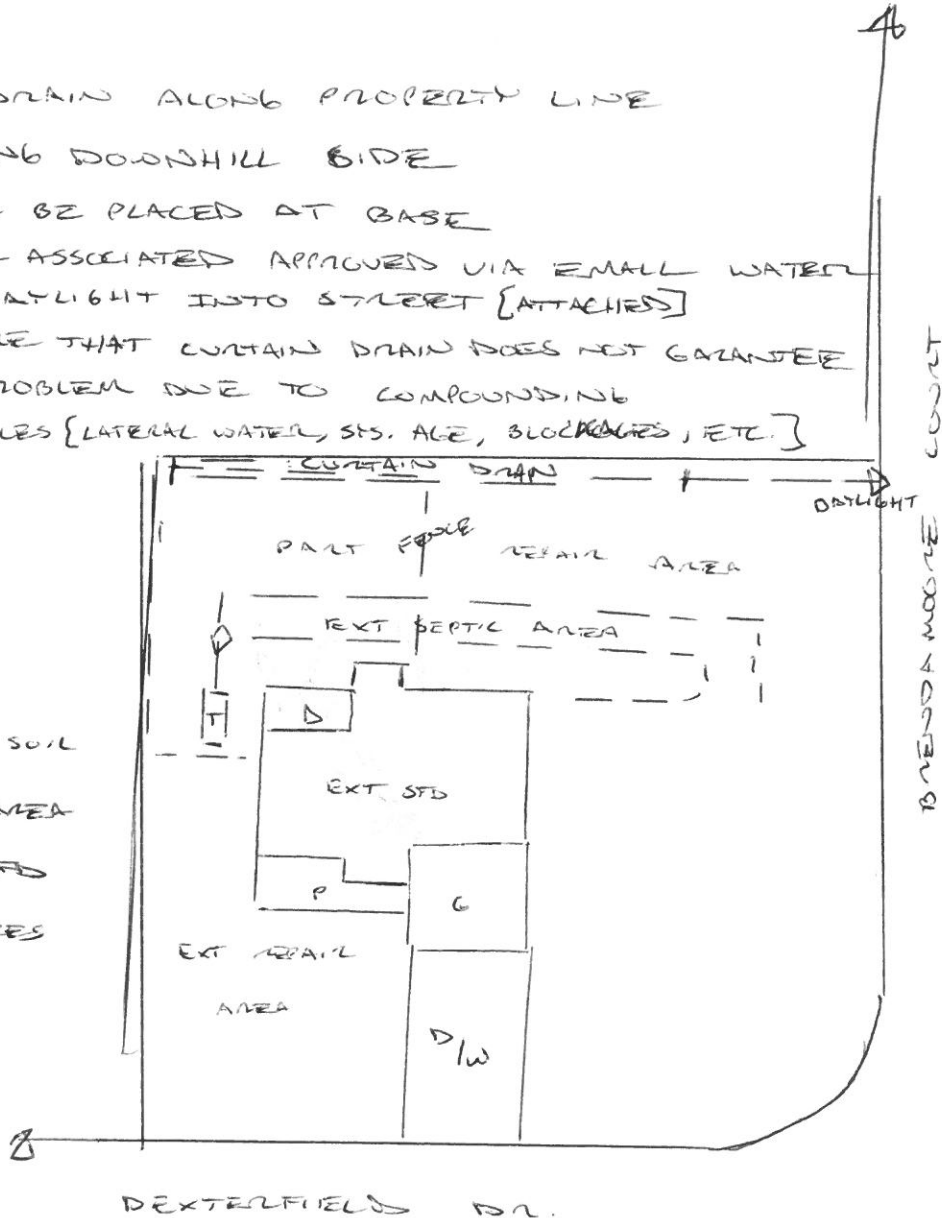 DRAIN ALONG PROPERTY LINE
NG DOWNHILL SIDE
BE PLACED AT BASE
ASSOCIATED APPROVED VIA EMAIL WATER
DAYLIGHT INTO STREET [ATTACHED]
THAT CURTAIN DRAIN DOES NOT GARANTEE
PROBLEM DUE TO COMPOUNDING
LES [LATERAL WATER, SYS. AGE, BLOCKAGES, ETC.]
CURTAIN DRAIN
DAYLIGHT
PART REPAIR AREA
EXT SEPTIC AREA
T
D
SOIL
EXT STD
AREA
P
G
EXT REPAIR
AREA
D/W
BRENDAMOORE COURT
DEXTERFIELD DR.